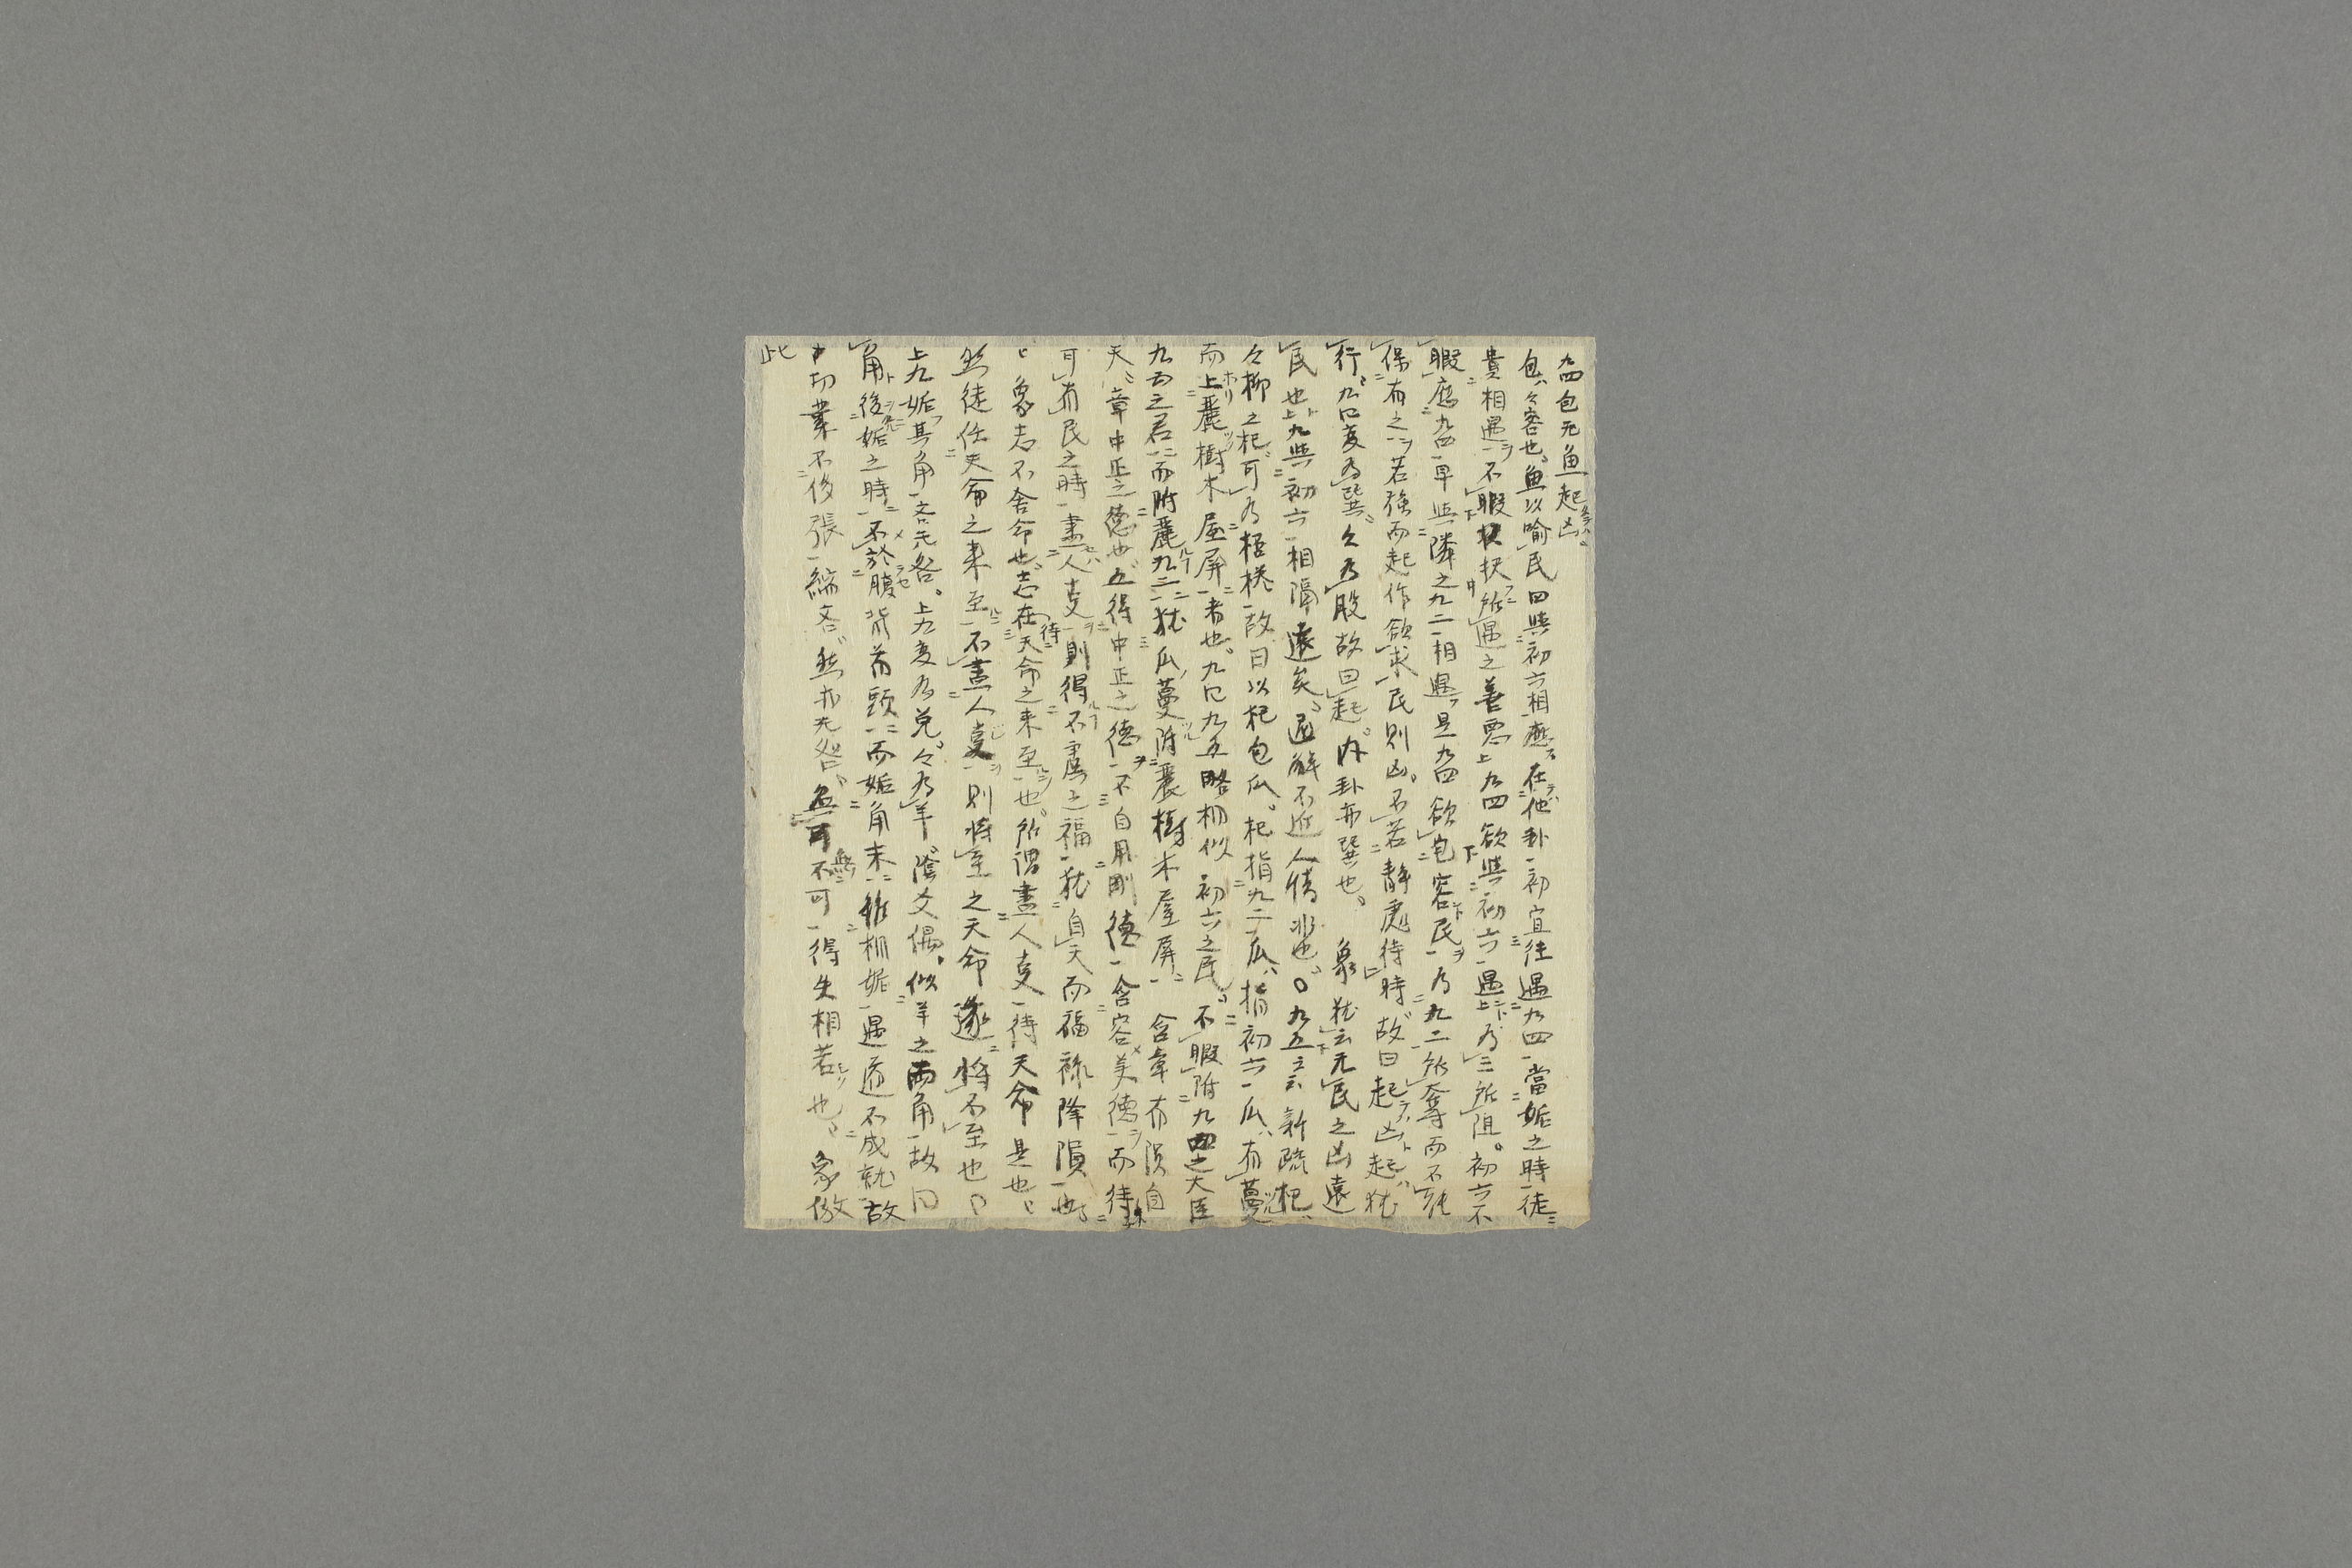 九四包无魚起凶
包々容也魚以喻民四與初六相應在他卦初宜往遇九四當姤之時徒
貴相遇不暇択所遇之善悪九四欲與初六遇為二所阻初六不
暇應九四早與隣之九二相遇是九四欲包容民為九二所奪而不能
保有之若強而起作欲求民則凶不若靜處待時故曰起凶起猶
行九四变為巽々為股故曰起内卦亦巽也 象猶云无民之凶遠
民也上九與初六相隔遠矣通解不近人情非也〇九五云云新疏杞
々柳之杞可為桮棬故曰以杞包瓜杞指九二瓜指初六瓜有蔓
而上麗樹木屋屏者也九四九五略相似初六之民不暇附九四之大臣
九五之君而附麗九二猶瓜蔓附麗樹木屋屏 含章有隕自
天章中正之德也五得中正之德不自用剛德含容美德而待
可有民之時盡人事則得不虞之福猶自天而福祿降隕也
象志不舍命也志在待天命之来至也所謂盡人事待天命是也
然徒任天命之来至不盡人事則将至之天命遂将不至也
上九姤其角吝无咎上九变為兌々為羊陰爻偶似羊之両角故曰
角後姤之時不於腹背前頭而姤角末雖相姤遇而不成就故
事業不後張編吝然亦无咎無可不可得失相若也 象倣
此